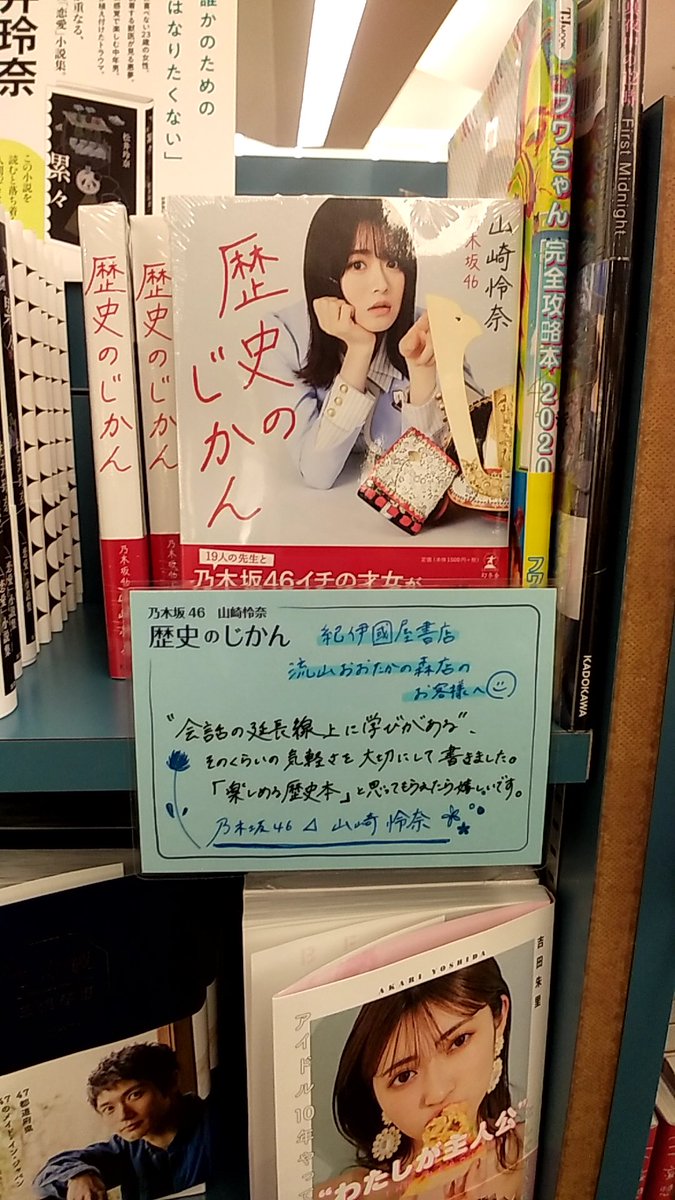 井玲奈
誰かのための
はなりたくない」
「恋愛」小説集。
松井玲奈
累々
この小説を
歴史のじかん
歴史のじかん
乃木坂46
歴史の
じかん
山崎怜奈
乃木坂46
19人の先生と
乃木坂46イチの才女が
幻冬舎
TJMOOK
フワちゃん 完全攻略本 2020
First Midnight
KADOKAWA
乃木坂46 山崎怜奈
歴史のじかん
紀伊國屋書店
流山おおたかの森店の
お客様へ
"会話の延長線上に学びがある"、
そのくらいの気軽さを大切にして書きました。
「楽しめる歴史本」と思ってもらえたら嬉しいです。
乃木坂46 山崎怜奈
AKARI YOSHIDA
吉田朱里
アイドル10年やって
"わたしが主人公"
47都道府県
47のメイド・イン・ジャパン